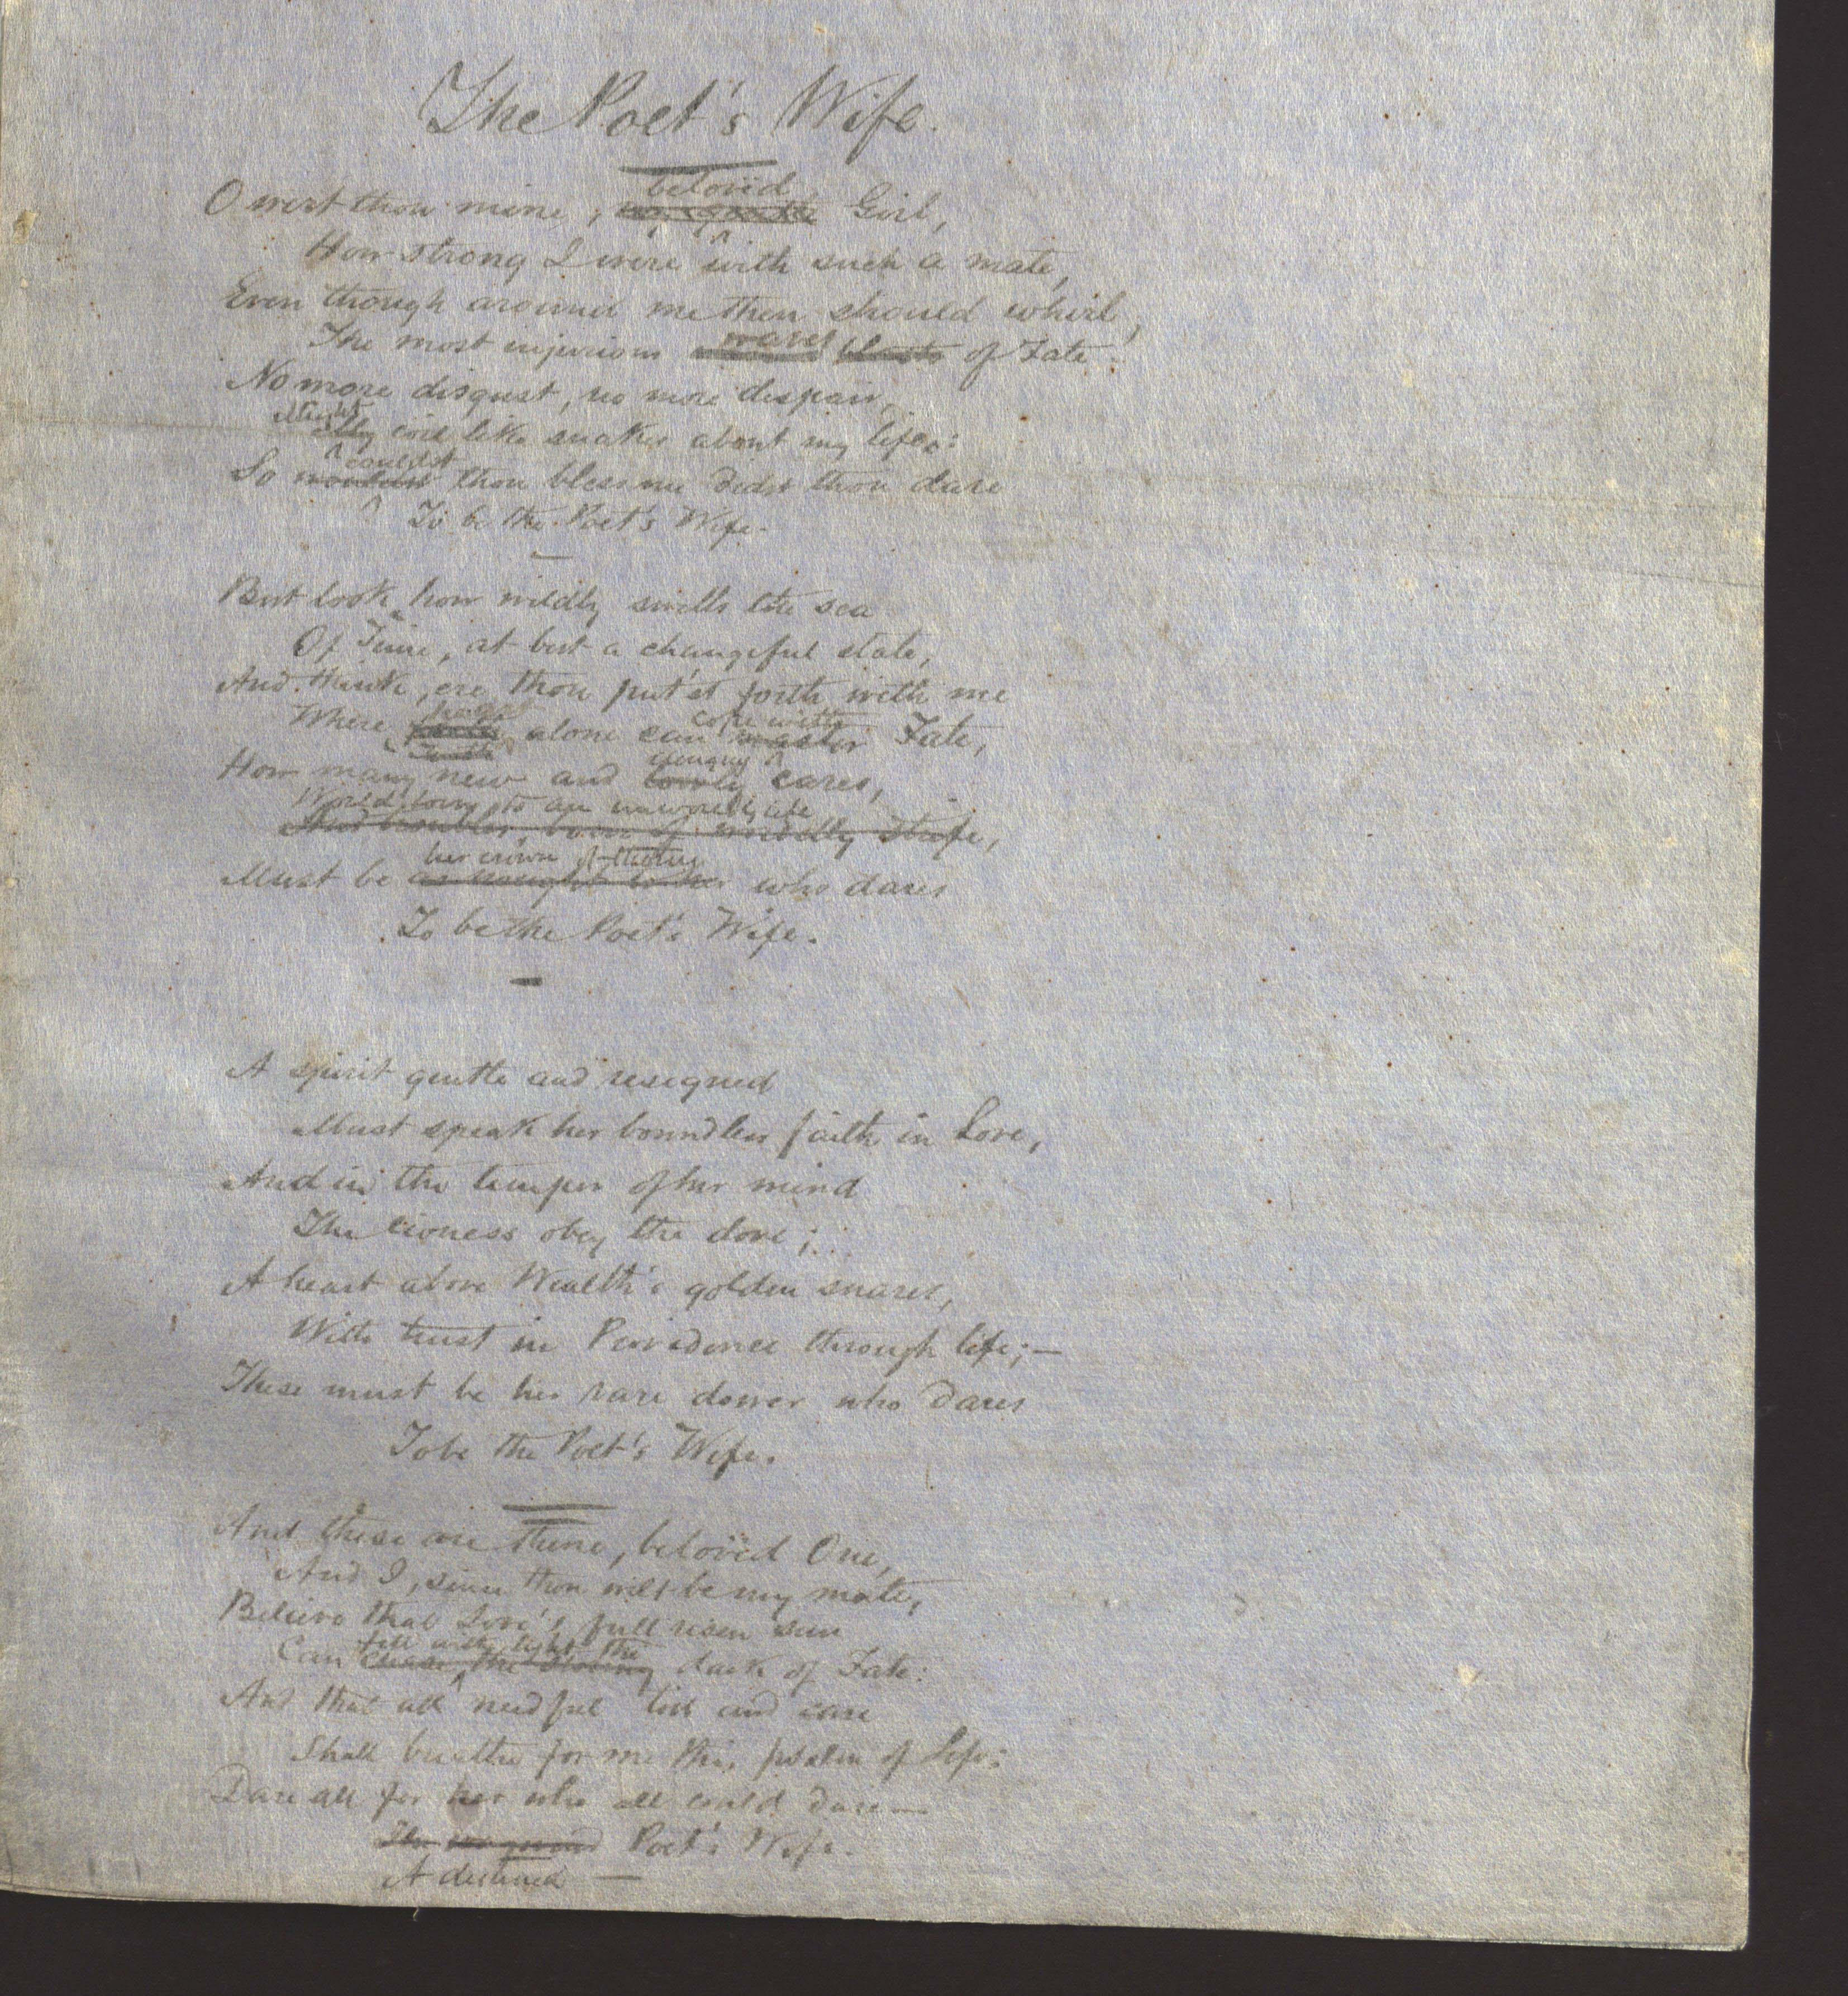 The Poet's Wife.
beloved
O wert thou mine, Girl,
How strong I were with such a mate,
Even though around me then should whirl,
waves
The most injurious blasts of Fate.
No more disgust, no more despair,
Might
coil like snakes about my life:
couldst
So wouldst thou bless me didst thou dare
To be the Poet's Wife.
But look how wildly swells the sea
Of Time, at best a changeful state,
And think, ere thou put'st forth with me
cope with
Where alone can master Fate,
Faith
How many new and lowly cares,
World-born, to an unworldly life
And troubles, born of worldly strife,
her crown of thorns
Must be as nought to her who dares
To be the Poet's Wife.
A spirit gentle and resigned
Must speak her boundless faith in Love,
And in the temper of her mind
The lioness obey the dove;
A heart above Wealth's golden snares,
With trust in Providence through life;—
These must be her rare dower who dares
To be the Poet's Wife.
And these are thine, belovëd One,
And I, since thou wilt be my mate,
Believe that Love's full risen sun
fill with light the
Can chase the dark of Fate:
And that all needful toil and care
Shall breathe for me this psalm of Life:
Dare all for her who all could dare—
The Poet's Wife.
A destined —